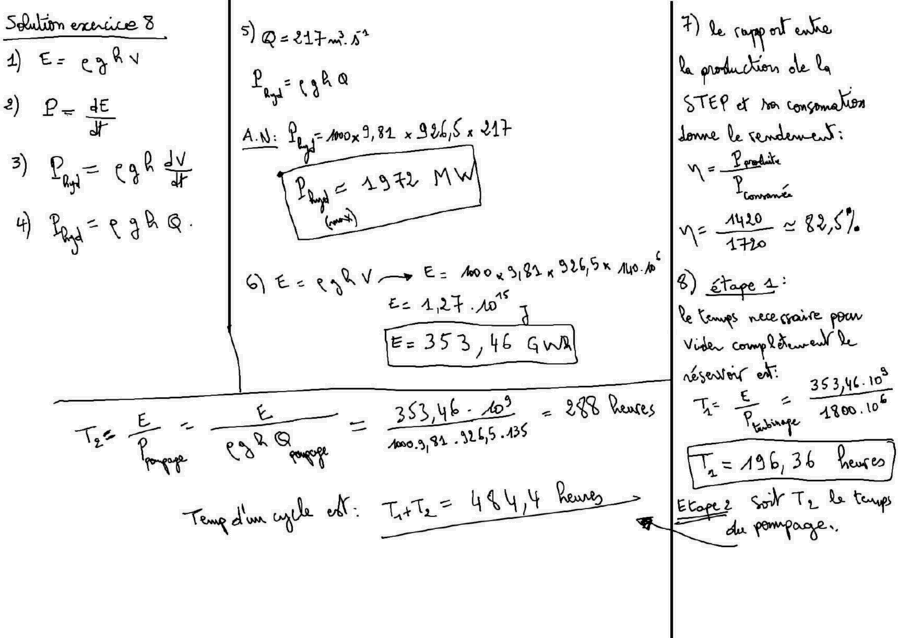 Solution exercice 8
1) E = ρ g h V
2) P = dE/dt
3) P_hyd = ρ g h dV/dt
4) P_hyd = ρ g h Q.
5) Q = 217 m³.s⁻¹
P_hyd = ρ g h Q
A.N: P_hyd = 1000 x 9,81 x 926,5 x 217
P_hyd (max) ≃ 1972 MW
6) E = ρ g h V → E = 1000 x 9,81 x 926,5 x 140.10⁶
E = 1,27 . 10¹⁵ J
E = 353,46 GWh
7) le rapport entre
la production de la
STEP et sa consomation
donne le rendement:
η = P_produite / P_consommée
η = 1420 / 1720 ≃ 82,5%
8) étape 1:
le temps necessaire pour
vider complètement le
réservoir est:
T₁ = E / P_turbinage = 353,46.10⁹ / 1800.10⁶
T₁ = 196,36 heures
Etape 2 soit T₂ le temps
du pompage..
T₂ = E / P_pompage = E / ρ g h Q_pompage = 353,46 . 10⁹ / 1000.9,81.926,5.135 = 288 heures
Temp d'un cycle est: T₁+T₂ = 484,4 heures